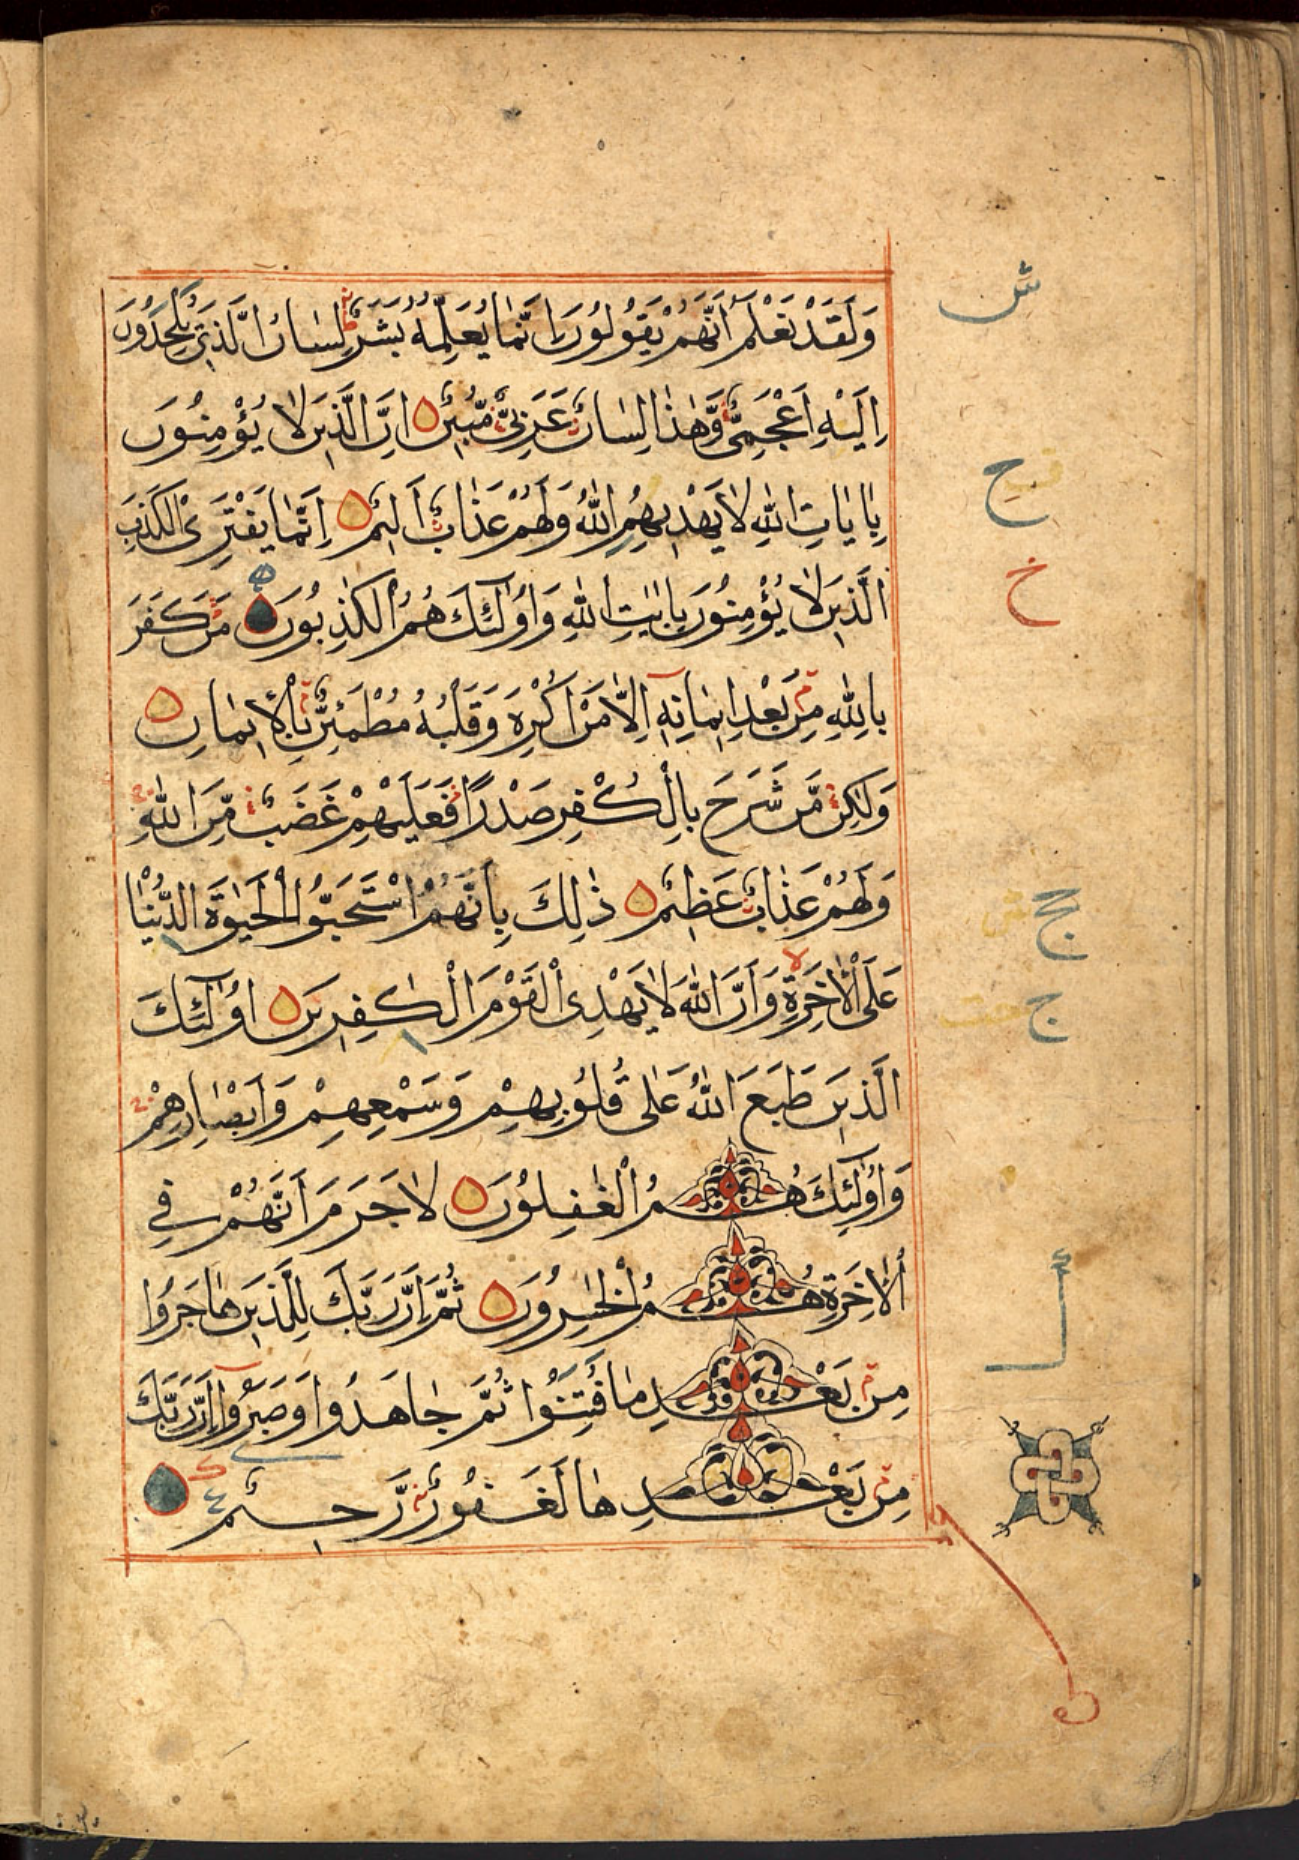 وَلَقَدْ نَعْلَمُ أَنَّهُمْ يَقُولُونَ إِنَّمَا يُعَلِّمُهُ بَشَرٌ لِسَانُ الَّذِي يُلْحِدُونَ
إِلَيْهِ أَعْجَمِيٌّ وَّهٰذَا لِسَانٌ عَرَبِيٌّ مُّبِينٌ ۝ إِنَّ الَّذِينَ لَا يُؤْمِنُونَ
بِاٰيَاتِ اللّٰهِ لَا يَهْدِيهِمُ اللّٰهُ وَلَهُمْ عَذَابٌ أَلِيمٌ ۝ إِنَّمَا يَفْتَرِى الْكَذِبَ
الَّذِينَ لَا يُؤْمِنُونَ بِاٰيٰتِ اللّٰهِ وَاُولٰٓئِكَ هُمُ الْكٰذِبُونَ ۝ مَنْ كَفَرَ
بِاللّٰهِ مِنْ بَعْدِ اِيمَانِهٖ اِلَّا مَنْ اُكْرِهَ وَقَلْبُهُ مُطْمَئِنٌّ بِالْاِيمَانِ ۝
وَلٰكِنْ مَّنْ شَرَحَ بِالْكُفْرِ صَدْرًا فَعَلَيْهِمْ غَضَبٌ مِّنَ اللّٰهِ
وَلَهُمْ عَذَابٌ عَظِيمٌ ۝ ذٰلِكَ بِاَنَّهُمُ اسْتَحَبُّوا الْحَيٰوةَ الدُّنْيَا
عَلَى الْاٰخِرَةِ وَاَنَّ اللّٰهَ لَا يَهْدِى الْقَوْمَ الْكٰفِرِينَ ۝ اُولٰٓئِكَ
الَّذِينَ طَبَعَ اللّٰهُ عَلٰى قُلُوبِهِمْ وَسَمْعِهِمْ وَاَبْصَارِهِمْ
وَاُولٰٓئِكَ هُمُ الْغٰفِلُونَ ۝ لَا جَرَمَ اَنَّهُمْ فِي
الْاٰخِرَةِ هُمُ الْخٰسِرُونَ ۝ ثُمَّ اِنَّ رَبَّكَ لِلَّذِينَ هَاجَرُوا
مِنْ بَعْدِ مَا فُتِنُوا ثُمَّ جَاهَدُوا وَصَبَرُوا اِنَّ رَبَّكَ
مِنْ بَعْدِهَا لَغَفُورٌ رَّحِيمٌ